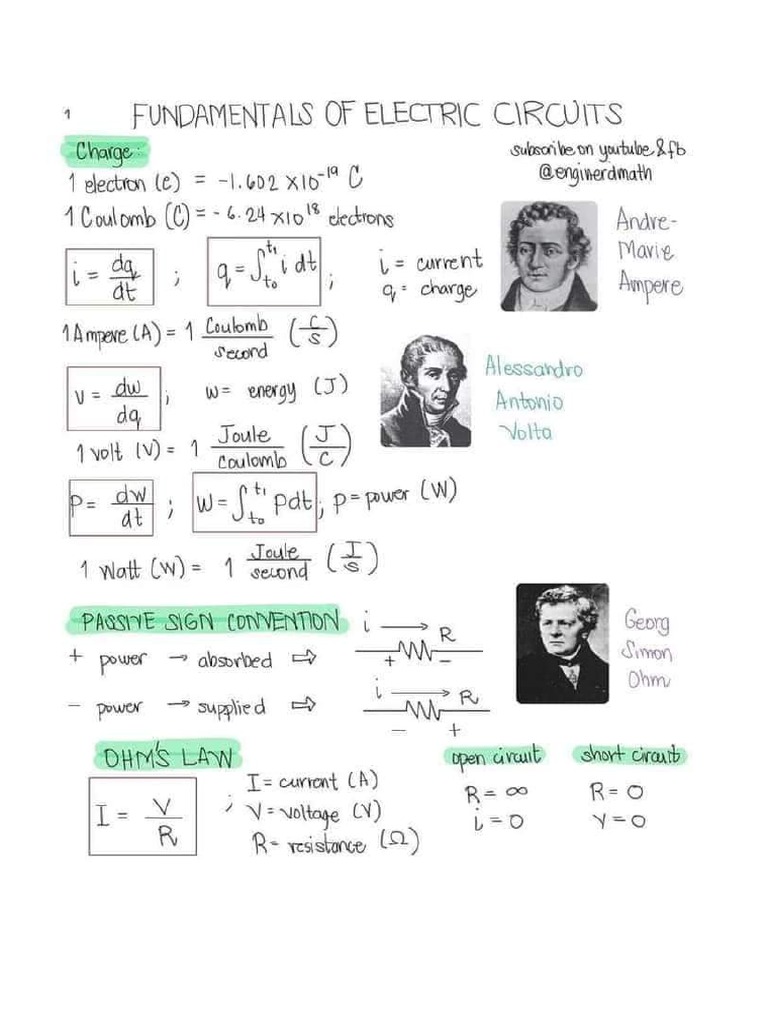 1
FUNDAMENTALS OF ELECTRIC CIRCUITS
Charge:
subscribe on youtube & fb
@enginerdmath
1 electron (e) = -1.602 x10⁻¹⁹ C
1 Coulomb (C) = - 6.24 x10¹⁸ electrons
Andre-
Marie
Ampere
i = dq/dt ; q = ∫_{t₀}^{t₁} i dt ; i = current
q = charge
1 Ampere (A) = 1 Coulomb/second (C/s)
v = dw/dq ; w = energy (J)
Alessandro
Antonio
Volta
1 volt (V) = 1 Joule/Coulomb (J/C)
P = dw/dt ; W = ∫_{t₀}^{t₁} pdt ; p = power (W)
1 Watt (W) = 1 Joule/second (J/s)
PASSIVE SIGN CONVENTION
i → R
+ -
+ power → absorbed ⇨
Georg
Simon
Ohm
i → R
- +
- power → supplied ⇨
OHM'S LAW
I = V/R ; I = current (A)
V = voltage (V)
R = resistance (Ω)
open circuit
R = ∞
i = 0
short circuit
R = 0
V = 0